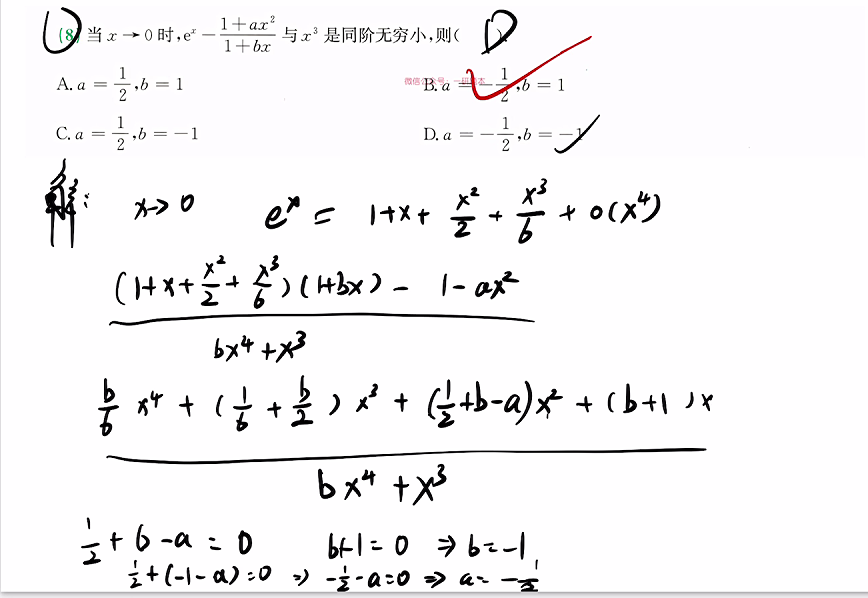 (8) 当 x → 0 时, eˣ − (1+ax²)/(1+bx) 与 x³ 是同阶无穷小,则( D ).
A. a = 1/2, b = 1
B. a = −1/2, b = 1
C. a = 1/2, b = −1
D. a = −1/2, b = −1
解: x→0 eˣ = 1+x+ x²/2 + x³/6 + o(x⁴)
(1+x+x²/2+x³/6)(1+bx) − 1−ax²
bx⁴+x³
b/6 x⁴ + (1/6 + b/2) x³ + (1/2+b−a)x² + (b+1)x
bx⁴+x³
1/2 + b −a = 0 b+1=0 ⇒ b=−1
1/2+(−1−a)=0 ⇒ −1/2−a=0 ⇒ a=−1/2